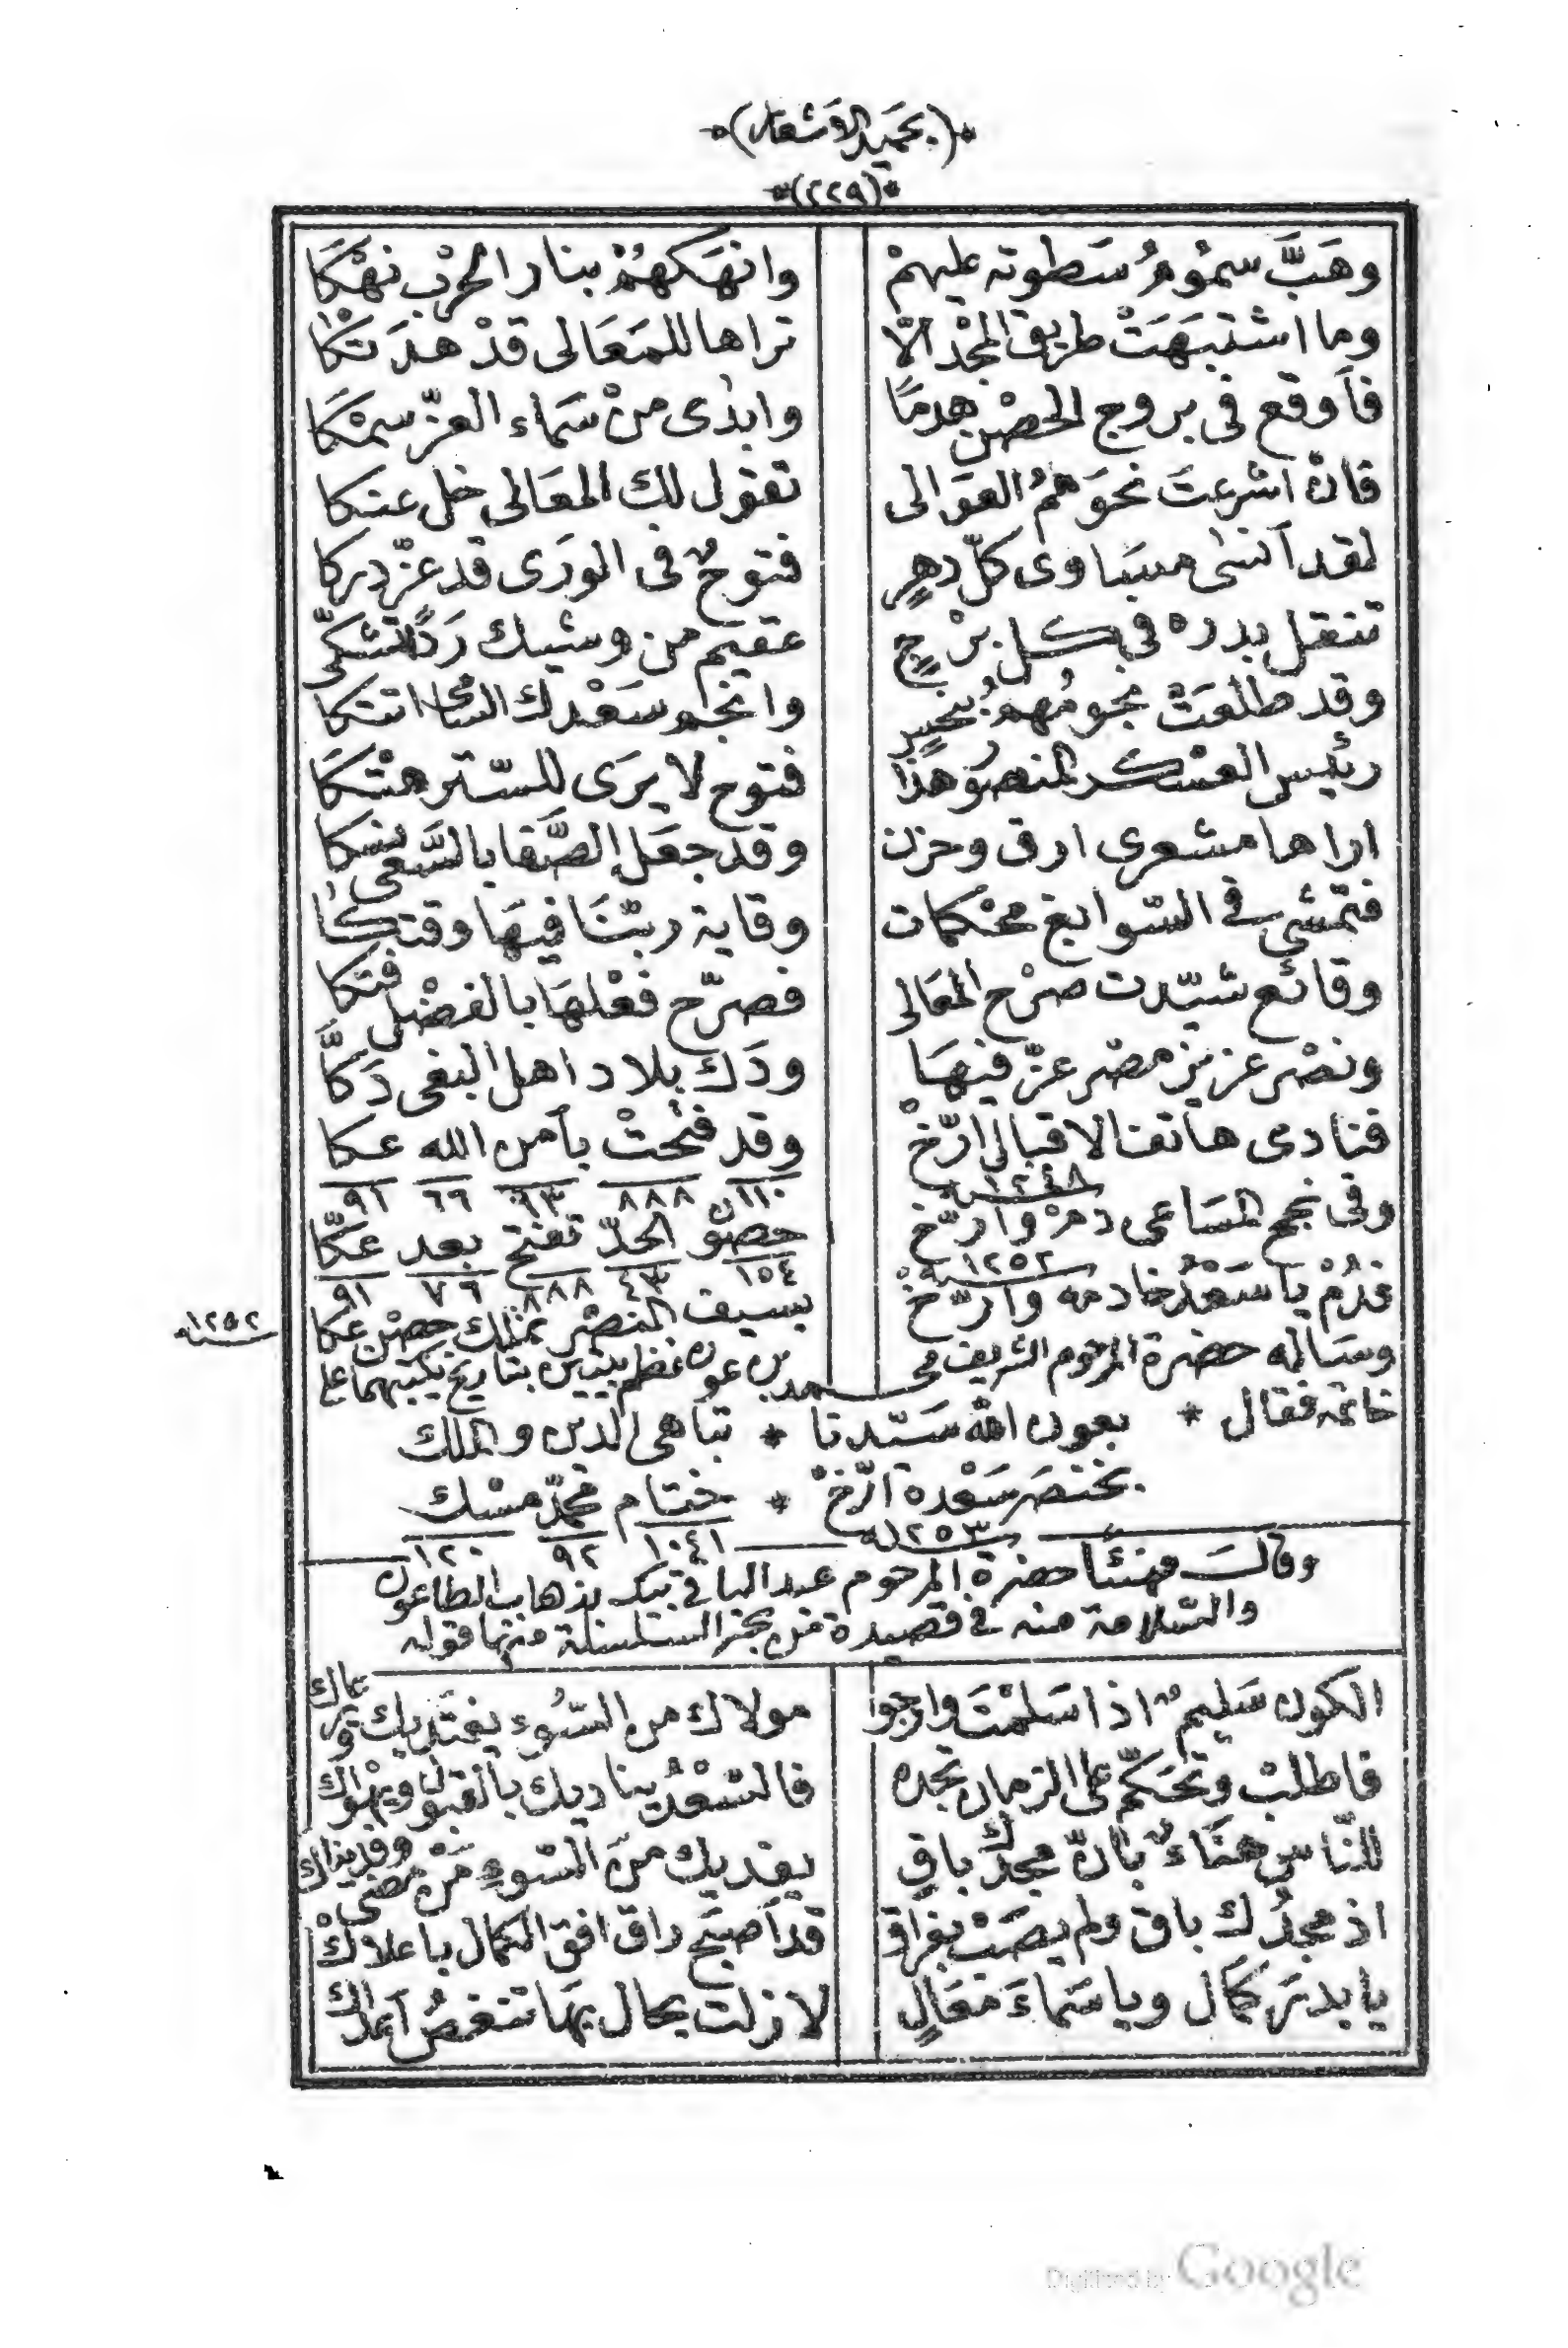 *(بحميد الاشعار)*
*(٢٢٩)*
وهَبَّ سمُومُ سَطوته عليهمْ وانهَكهُمْ بنار الحرْب نهْكَا
وما اشتبَهَتْ طريق المجْد الّا تراها للمَعَالى قدْ هدَتكَا
فاَوقع فى بروج الحصْن هدمًا وابدٰى منْ سَماء العزّ سمْكَا
فانْ اشرعتَ نحوَهمُ العوَالى تقول لك المعَالى خل عنكا
لقد آنسٰى مساوى كلّ دهرٍ فتوحٌ فى الورَى قد عزّ دركا
تنقل بدره فى كل برْجٍ عقيم من وشيك رَدًا تشكّى
وقد طلعَتْ نجومُهمُ بنحسٍ وانجم سَعْدك
رئيس العسْكر المنصور هذَا فتوح لا يرَى للسّتر هتْكَا
اراها مشعرى ارق وحزن وقد جعَل الصَّفا بالسَّعى نسكا
فتمْشى فى السّوابغ محْكمات وقاية ربّنَا فيهَا وقتكَا
وقائع شيّدت صرْح المعَالى فصرّح فعْلهَا بالفضْل فتكا
ونصْر عزيز مصْر عزّ فيهَا ودَك بلاد اهل البغى دَكَّا
فنادى هاتف الاقبال ارّخْ وقد فتُحتْ بأمر الله عكا
١٢٤٨ ١١٠ ٨٨٨ ٩٣ ٦٦ ٩١
وفى نجح المسَاعى دمْ وارّخ حصون الحدّ تفتح بعد عكّا
١٢٥٢ ١٥٤ ٤٣ ٨٨٨ ٧٦ ٩١
فدُمْ يا سَعدُ خادمه وارّخْ بسيف النصْر تملك حصْن عكا
سنة ١٢٥٢
وسَاله حضرة المرحوم الشريف محمد بن عون نظم بيتين بتاريخ يكتبهما على
خاتمه فقال * بعون الله سَيّدنا * تباهى الدين والملك
بخنصَر سَعْده ارّخْ * ختام محمّد مسْك
١٢٥٣ ١٠٤١ ٩٢ ١٢٠
وقالَ مهنئًا حضرة المرحوم عبد الباقى بيك بذهاب الطاعون
والسّلامة منه فى قصيدة من بحر السلسلة منها قوله
الكون سَليمٌ اذا سَلمْتَ وارجوا مولاك من السُّوء يفتديك
فاطلبْ وتحَكّم على الزمان تجده فالسّعْدُ يناديك بالقبول
للنّاس هنَاءٌ بانّ مجدَك باقٍ يفديك منَ السّوءِ منْ مضى
اذ مجدُك باق ولم يصَبْ بفراق قد اَصبَح راق افق الكمال باعلاكْ
يا بدرَ كمَال ويا سَماءَ معَالٍ لا زلت بحال بهَا تنغصُ
Digitized by Google